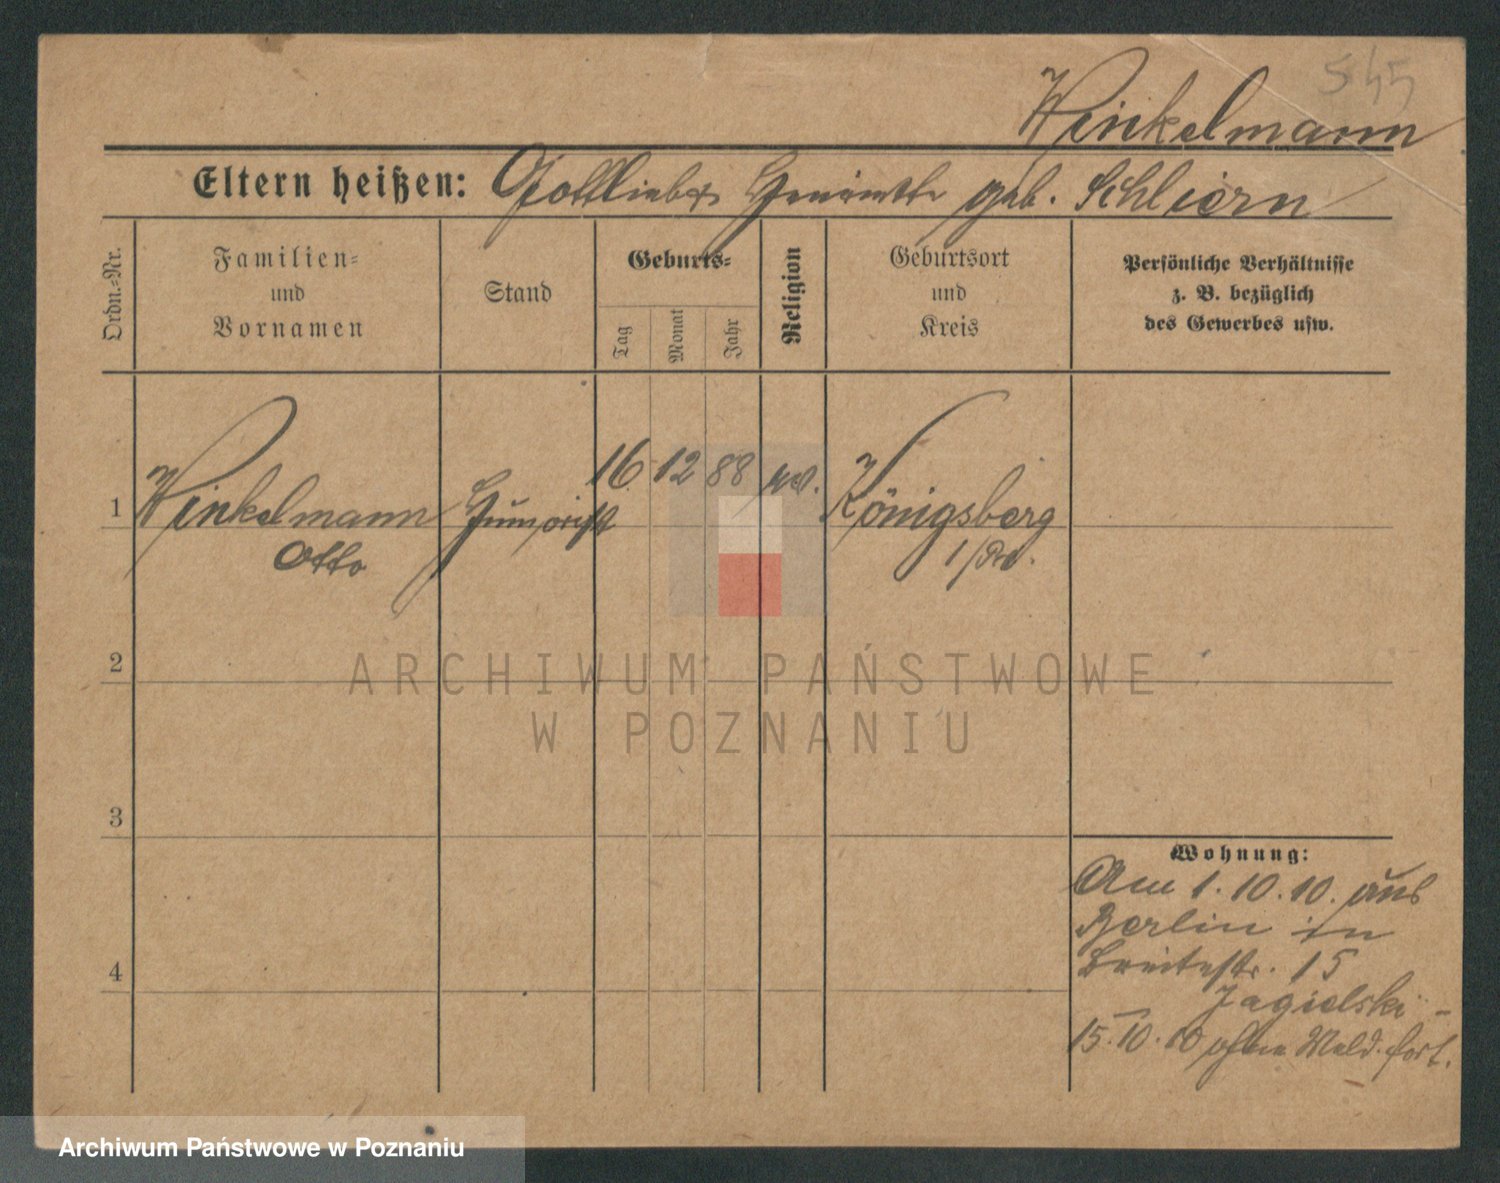 545
Winkelmann
Eltern heißen: Gottlieb & Henriette geb. Schliern
Ordn.=Nr.
Familien=
und
Vornamen
Stand
Geburts=
Tag
Monat
Jahr
Religion
Geburtsort
und
Kreis
Persönliche Verhältnisse
z. B. bezüglich
des Gewerbes usw.
1 Winkelmann Humorist 16 12 88 ev. Königsberg
Otto i/Pr.
2
3
4
Wohnung:
Am 1.10.10. aus
Berlin in
Breitestr. 15
Jagielski -
15.10.10 ohne Meld. fort.
ARCHIWUM PAŃSTWOWE
W POZNANIU
Archiwum Państwowe w Poznaniu